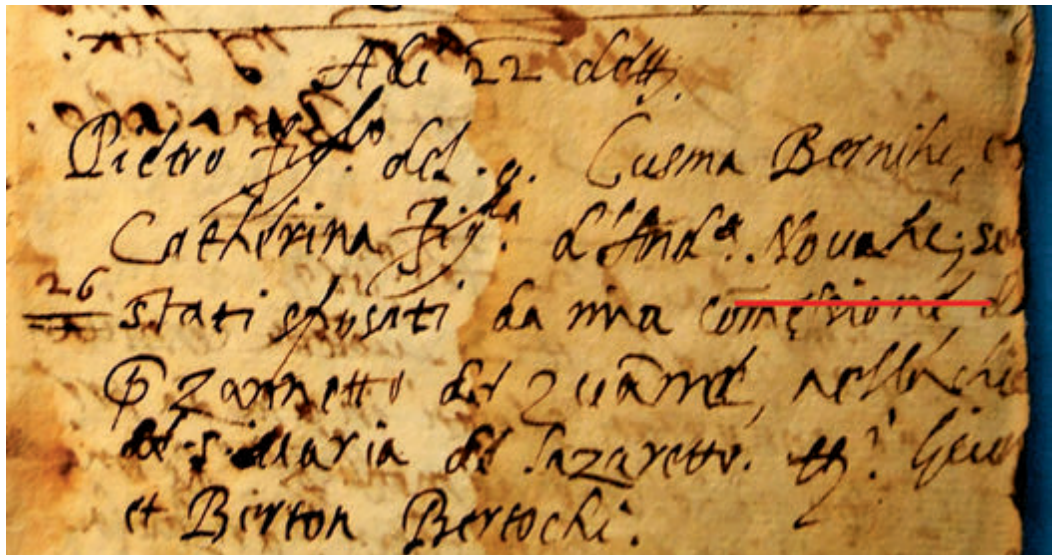 Adi 22 dett.
Pietro fig.lo del q. Cusma Bernihi, et
Catherina fig.la d'And.a Novache; so
26
stati sposati da mia comessione, d
P Zannetto de Zuanne, nella chie
de S. Maria del Lazaretto. tt.i
et Berton Bertochi.